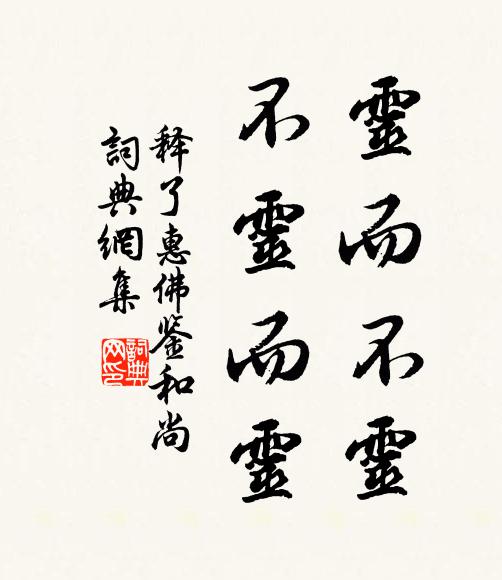 靈而不靈
不靈而靈
释了惠佛鉴和尚
詞典網集
詞典
网印